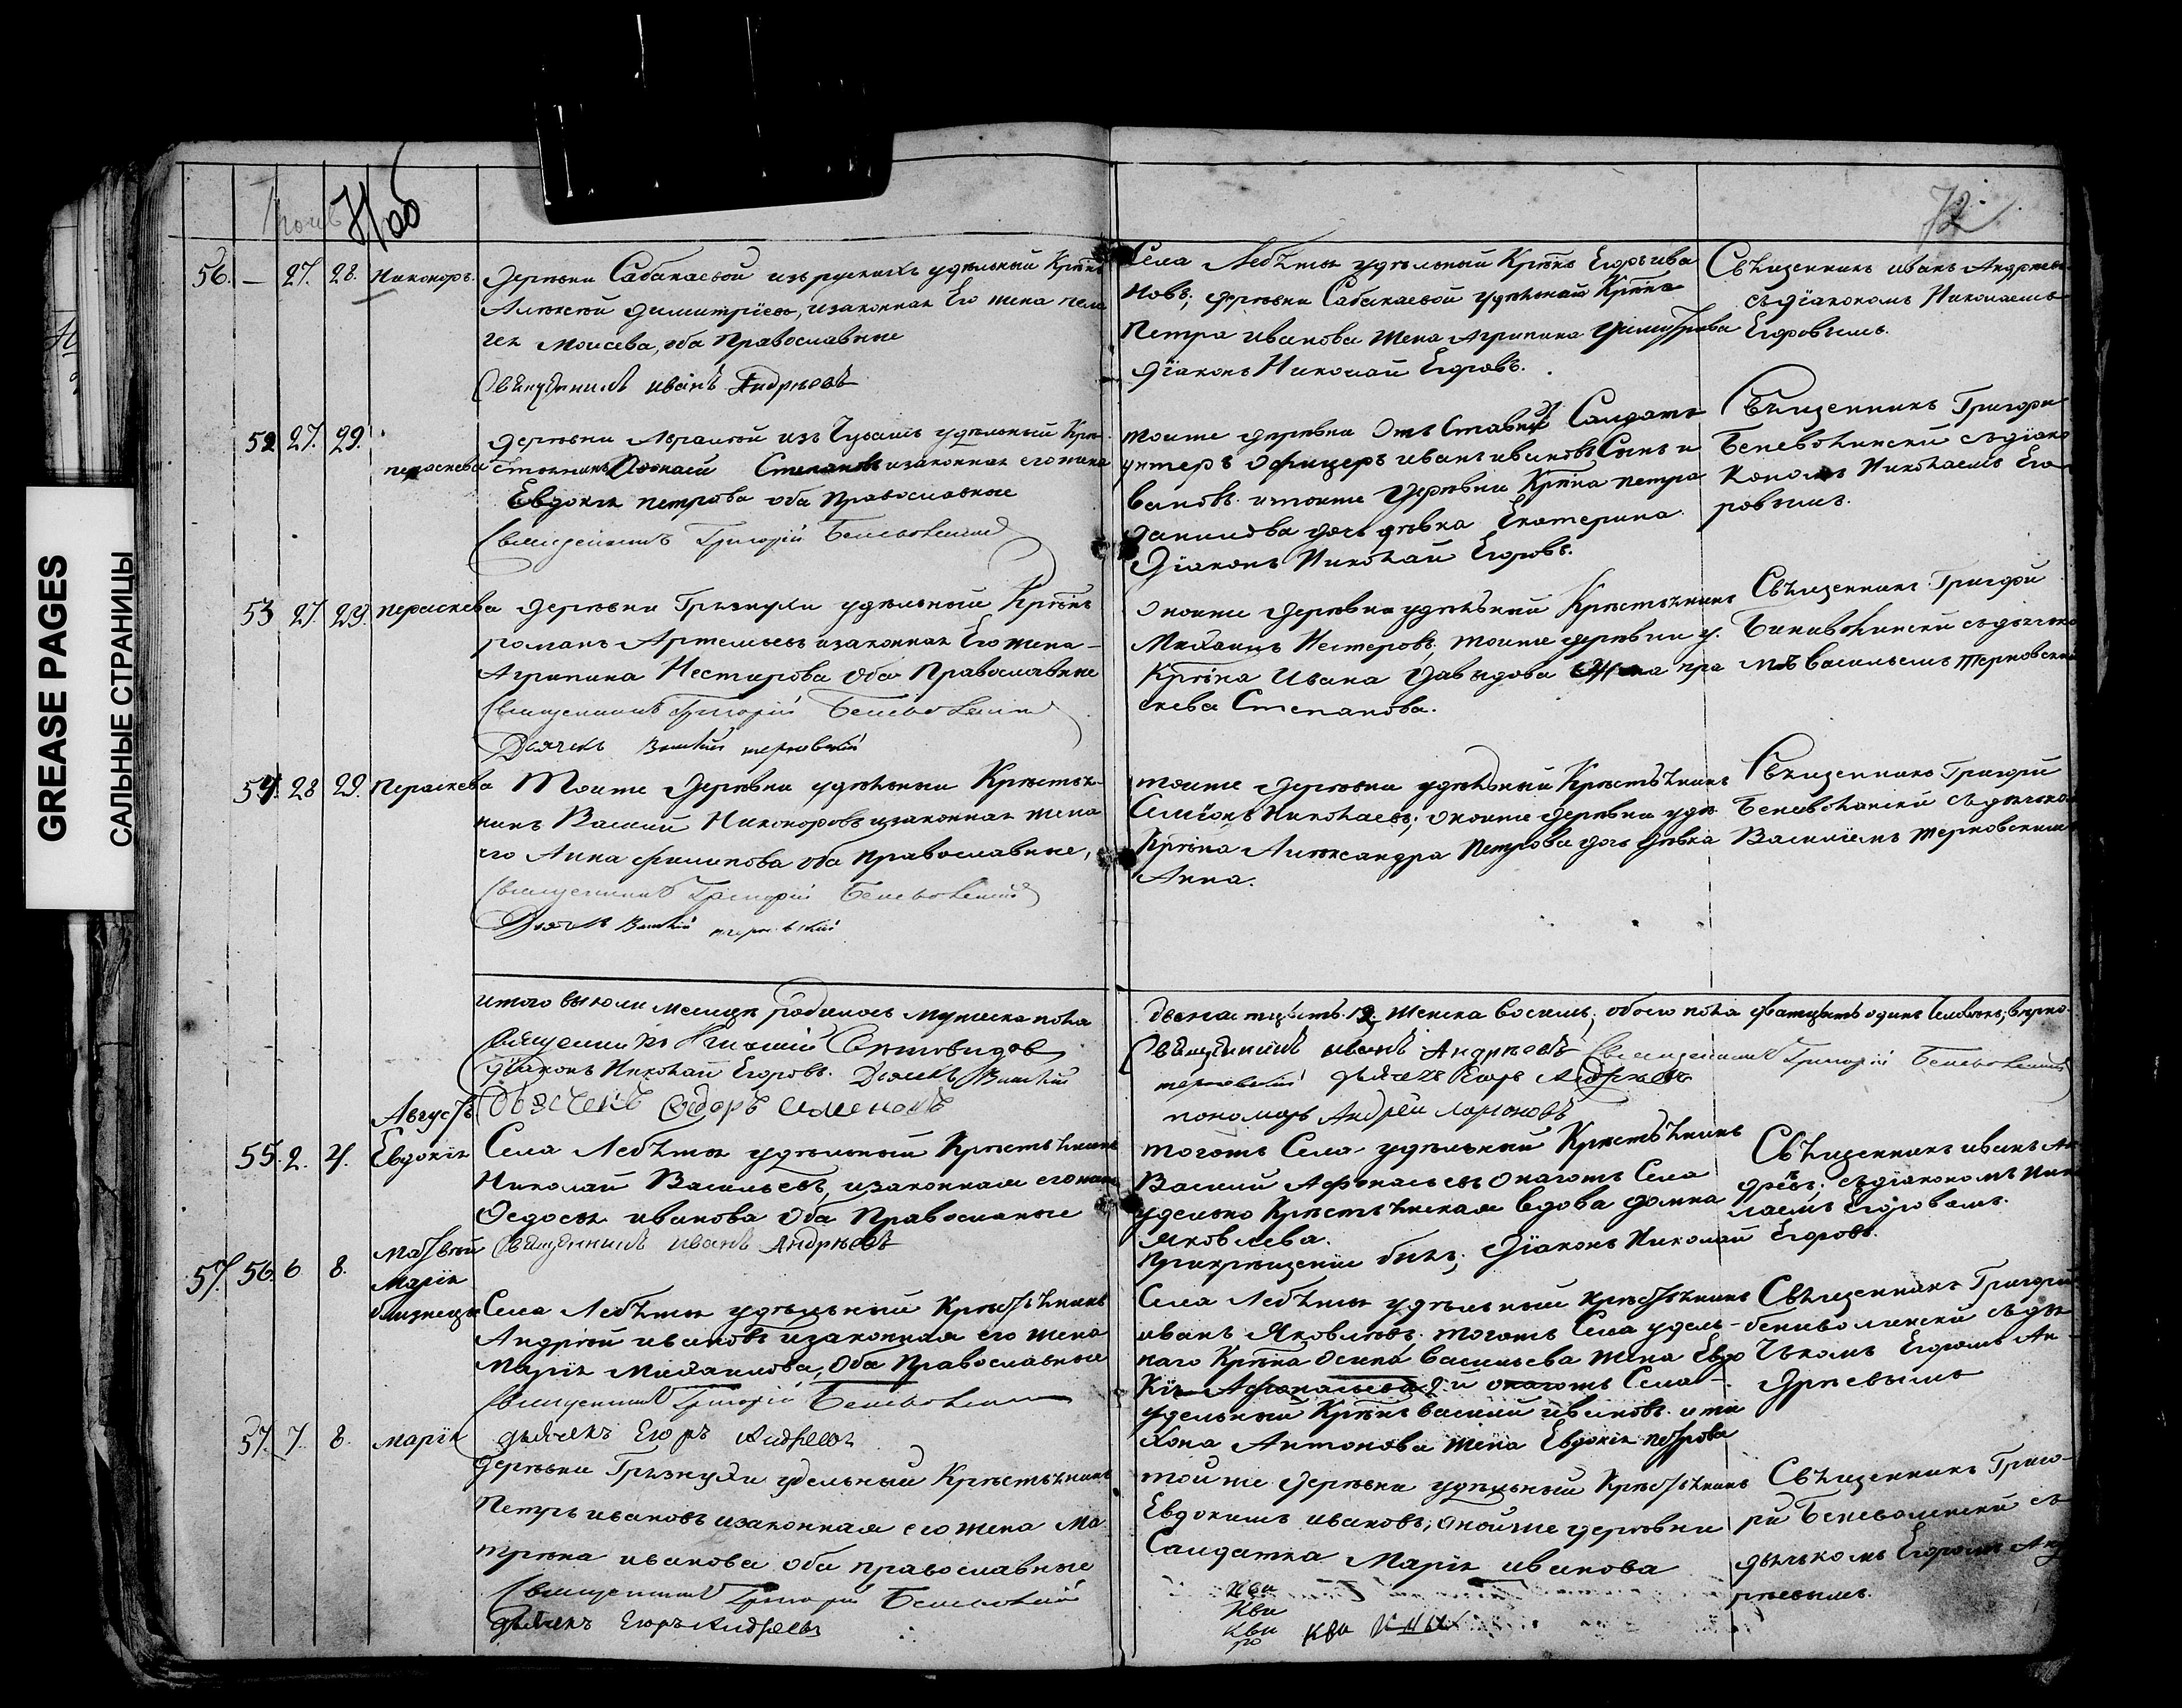 GREASE PAGES
САЛЬНЫЕ СТРАНИЦЫ
72
56. — 27. 28. Никоноръ.
Деревни Сабакаевой изъ рускихъ удѣльный Крѣнъ
Алѣксѣй Димитріевъ, изаконная Его жена пела
гея Моисева, оба Православные
Священникъ иванъ Андрѣевъ
Села Лебѣжы удѣльный Крѣнъ Егоръ ива
новъ; деревни Сабакаевой удѣльнай Крѣна
Петра иванова жена Агрипина
Діаконъ Николай Егоровъ.
Свѣщенникъ иванъ Андреевъ
съ діакономъ Николаемъ
Егоровымъ.
52 27. 29. пераскева
деревни изъ Чувашъ удѣльный Крѣ
стьянинъ Степановъ изаконная его жена
Евдокія петрова оба Православные
Священникъ Григорій
тоиже деревни Отъ Ставный Салдатъ
унтеръ офицеръ иванъ ивановъ Сынъ и
вановъ. итоиже деревни Крѣна петра
данилова дочь дѣвка Екатерина.
Діаконъ Николай Егоровъ.
Свѣщенникъ Григори
съ діако
номъ Николаемъ Его
ровымъ.
53 27. 29. пераскева
деревни Грязнухи удѣльный Крѣнъ
романъ Артемьевъ изаконная Его жена
Агрипина Нестирова Оба Православные
Священникъ Григорій
Дьячекъ Василій терновскій
Оноиже деревни удѣльный Крѣстьянинъ
Михаилъ Нестеровъ, тоиже деревни у.
Крѣна Ивана Давыдова жена пра
скева Степанова.
Свѣщенникъ Григори
съ дьячко
мъ Васильемъ терновским
54. 28 29. Пераскева
Тоиже Деревни удѣльный Крѣстья
нинъ Василий Никоноровъ изаконная жена
его Анна филипова оба православные,
Священникъ Григорій
Дьячекъ Василій терновскій
тоиже деревни удѣльный Крѣстьянинъ
Семіонъ Николаевъ; оноиже деревни удѣ.
Крѣна Алѣксандра Петрова дочь дѣвка
Анна.
Свѣщенникъ Григори
съ дьячко
Василіемъ терновским
итого въ юли Месяцѣ родилось мужска пола
двенатцеть. 12. женска восемь, обоего пола дватцеть одинъ
Священникъ
Священникъ иванъ Андрѣевъ Священникъ Григорій
Діаконъ Николай Егоровъ. Дьячекъ Василій
терновский дьячекъ Егоръ Андреевъ
пономаръ Андрей
Августъ
55. 2. 4. Евдокія
Села Лебѣжы удѣльный Крѣстьянинъ
Николай Васильевъ, изаконная его жена
Ѳедосья иванова Оба Православные
Священникъ иванъ Андрѣевъ
тогожъ Села удѣльный Крѣстьянинъ
Василий Афонасьевъ онагожъ Села
удельно Крѣстьянская вдова домна
Яковлева.
При крѣщеніи былъ; Діаконъ Николай Егоровъ.
Свѣщенникъ иванъ Ан
дреевъ. съ діакономъ Нико
лаемъ Егоровымъ.
57. 56. 6 8. матвей
Марія
близнецы
Села Лебѣжы удѣльный Крѣстьянинъ
Андрѣй ивановъ изаконная его жена
Марія Михаилова, Оба Православные
Священникъ Григорій
дьячекъ Егоръ Андреевъ
Села Лебѣжы удѣльный крѣстьянинъ
иванъ Яковлевъ. тогожъ Села удель
наго Крѣна Осипа васильева жена Евдо
кія Афонасьева 2.й онагожъ Села
удельный Крѣнъ василий ивановъ. и ти
хона Антонова жена Евдокія петрова
Свѣщенникъ Григори
съ дья
чкомъ Егоромъ Ан
дрѣевымъ
57. 7. 8. марія
деревни Грязнухи удельный Крѣстьянинъ
Петръ ивановъ изаконная его жена Ма
трена иванова оба православные
Священникъ Григорій
дьячекъ Егоръ Андреевъ
той же деревни удѣльный Крѣстьянинъ
Евдокимъ ивановъ; онойже деревни
Салдатка Марія иванова
Свѣщенникъ Григо
ри съ
дьячкомъ Егоромъ Анд
рѣевымъ.
Кви
Кви
Кви
Кви